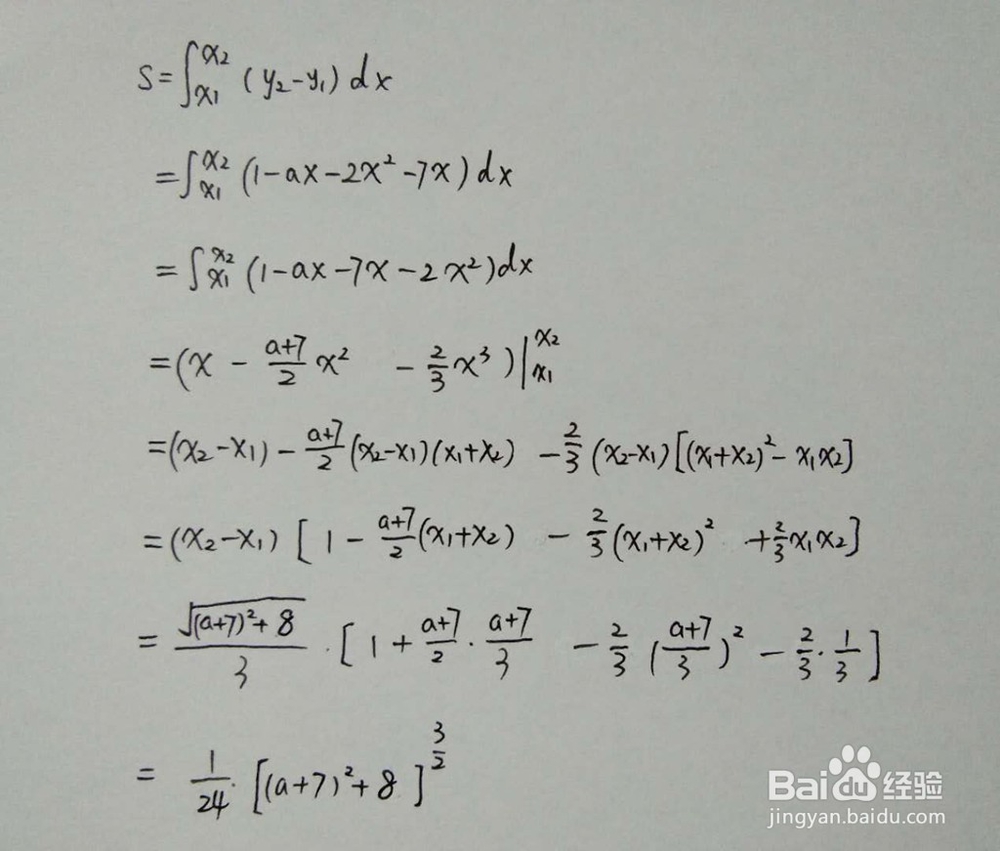 S=∫_{x1}^{x2} (y₂-y₁) dx
=∫_{x1}^{x2} (1-ax-2x²-7x) dx
=∫_{x1}^{x2} (1-ax-7x-2x²)dx
=(x - \frac{a+7}{2} x² - \frac{2}{3} x³)|_{x1}^{x2}
=(x₂-x₁) - \frac{a+7}{2} (x₂-x₁)(x₁+x₂) - \frac{2}{3} (x₂-x₁)[(x₁+x₂)²- x₁x₂]
=(x₂-x₁) [ 1 - \frac{a+7}{2}(x₁+x₂) - \frac{2}{3} (x₁+x₂)² + \frac{2}{3}x₁x₂]
= \frac{\sqrt{(a+7)²+8}}{3} · [ 1 + \frac{a+7}{2} · \frac{a+7}{3} - \frac{2}{3} (\frac{a+7}{3})² - \frac{2}{3} · \frac{1}{3} ]
= \frac{1}{24} · [(a+7)²+8]^{\frac{3}{2}}
Baidu经验
jingyan.baidu.com